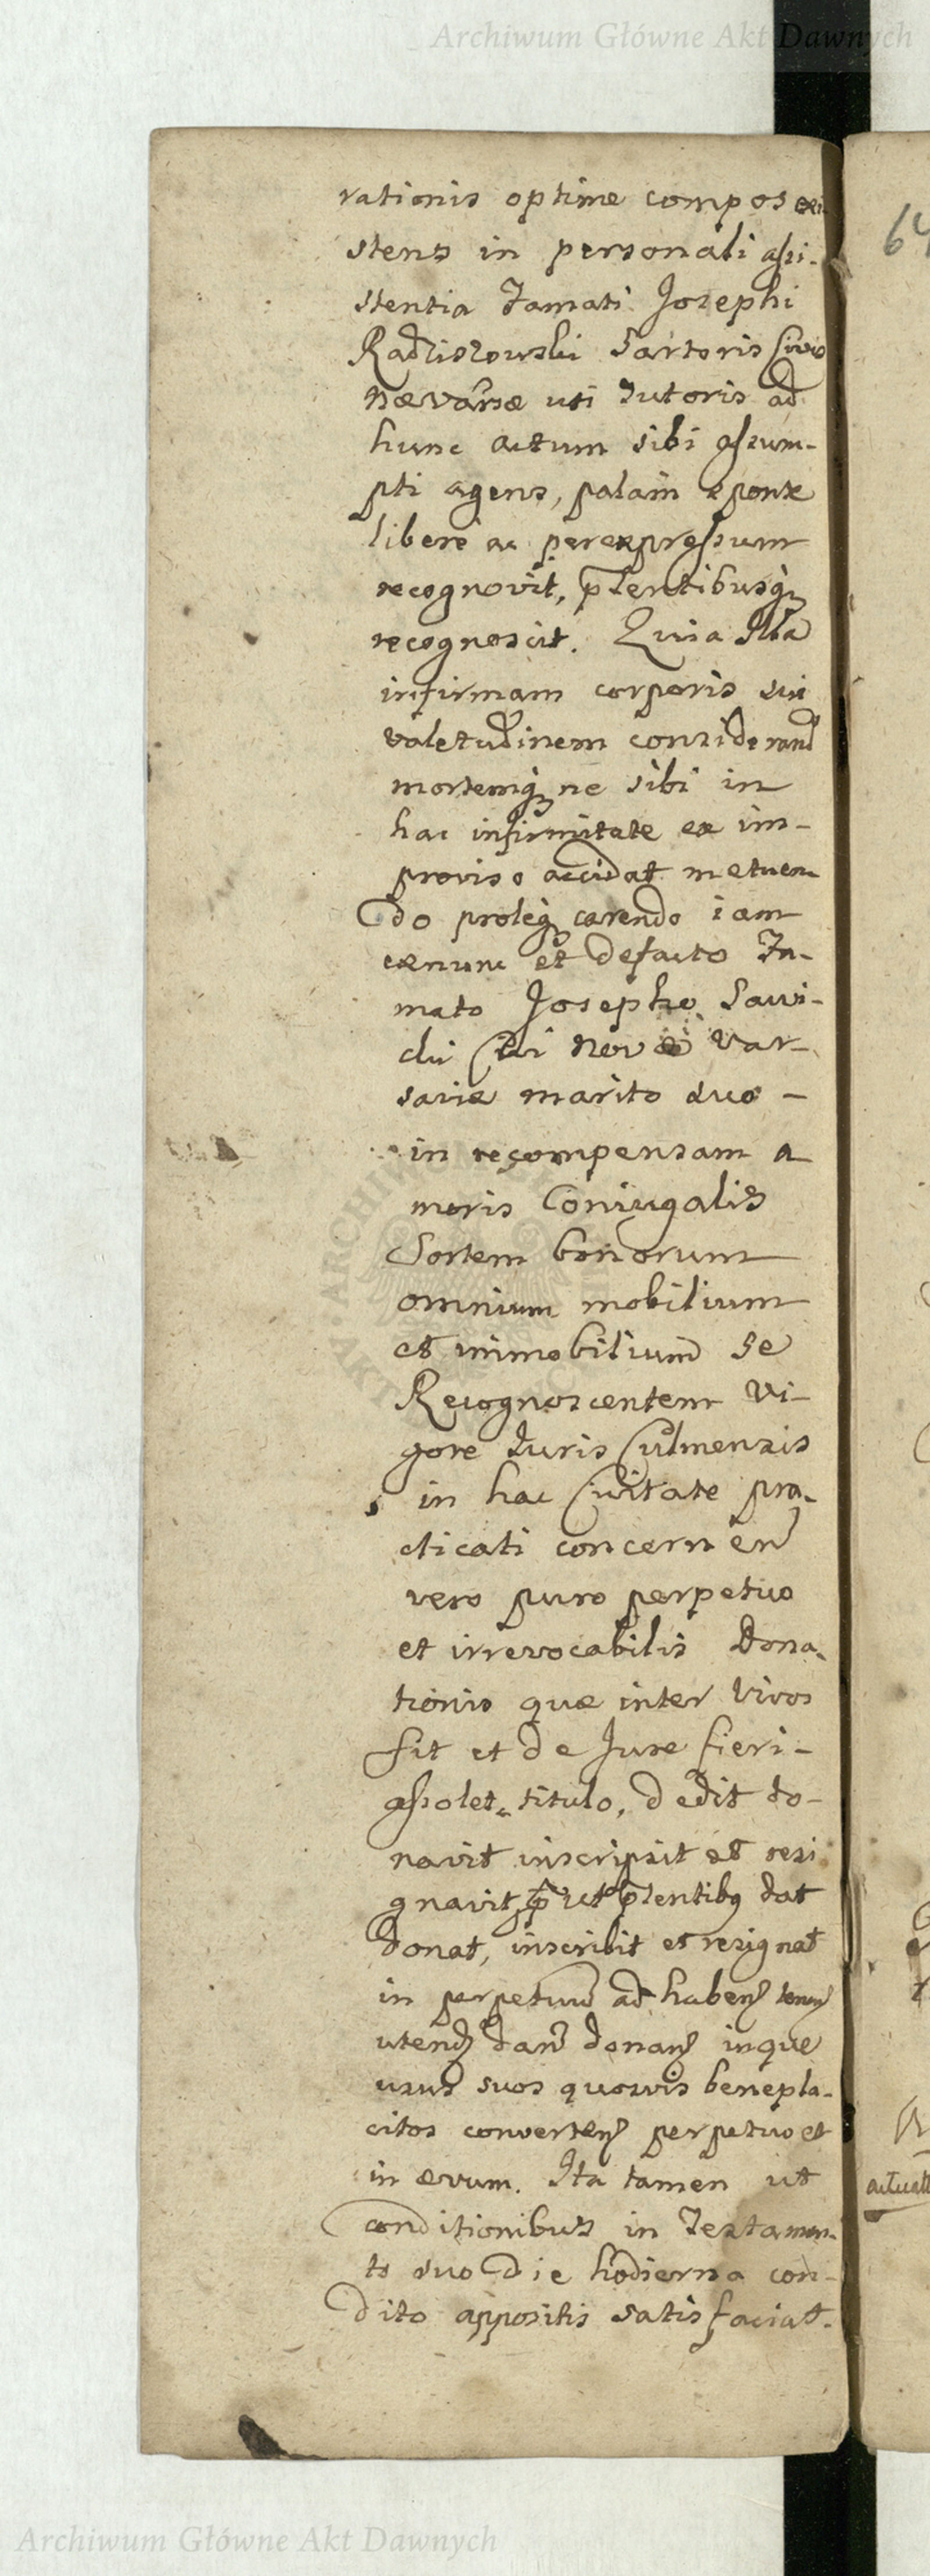 Archiwum Główne Akt Dawnych
rationis optime compos exi
stens in personali assi-
stentia Famati Josephi
Radziszowski Sartoris Civis
Næ Varsæ uti Tutoris ad
hunc actum sibi assum-
pti agens, palam sponte
libere ac per expressum
recognovit, pñtentibusq3
recognoscit. Quia Illa
infirmam corporis sui
valetudinem considerand
mortemq3 ne sibi in
hac infirmitate ex im-
proviso accidat metuen
do proleq3 carendo iam
exnunc et defacto Fa-
mato Josepho Sawi-
cki Civi Novæ Var-
saviæ marito suo -
in recompensam a
moris Coniugalis
Sortem bonorum
omnium mobilium
et immobilium se
Recognoscentem Vi-
gore Iuris Culmensis
in hac Civitate pra-
cticati concernen
vero puro perpetuo
et irrevocabilis Dona-
tionis quæ inter Vivos
fit et de Jure fieri-
assolet titulo, dedit do-
navit inscripsit et resi
gnavit, put pñtentibq dat
donat, inscribit et resignat
in perpetuũ ad habend tenend
utend dand donand inque
usus suos quosvis benepla-
citos convertend perpetuo et
in ævum. Ita tamen ut
conditionibus in Testamen-
to suo die hodierna con-
dito appositis satisfaciat.
64
actuatt
Archiwum Główne Akt Dawnych